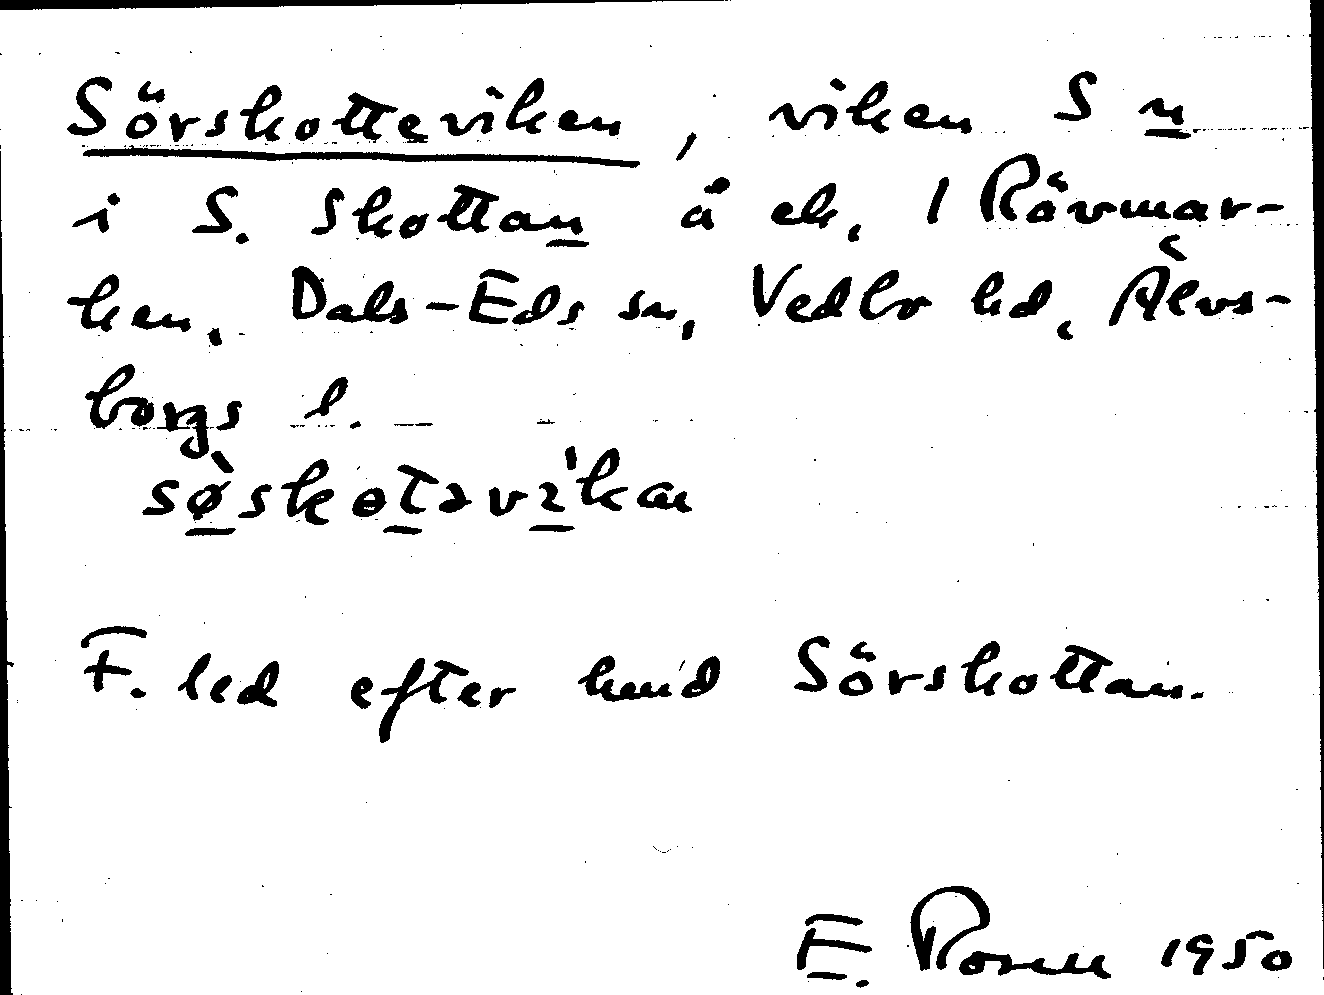 Sörskotteviken, viken S n
i S. Skottan å ek. 1 Rävmar-
ken, Dals-Eds sn, Vedbo hd, Älvs-
borgs l.
sø̀skotəvi'kan
F. led efter hmd Sörskottan.
E. Rosell 1950